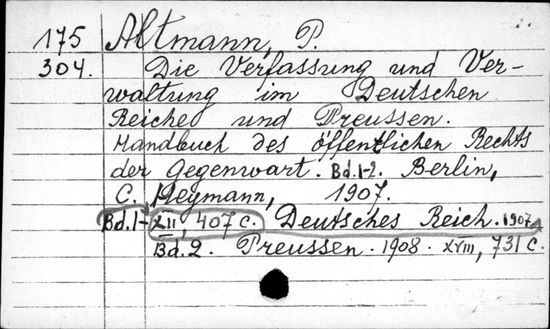 175 Altmann, P.
304. Die Verfassung und Ver-
waltung im Deutschen
Reiche und Preussen.
Handbuch des öffentlichen Rechts
der Gegenwart. Bd. 1-2. Berlin,
C. Heymann, 1907.
Bd. 1- XII, 407 c. Deutsches Reich. 1907
Bd. 2. Preussen. 1908. XVIII, 731 c.